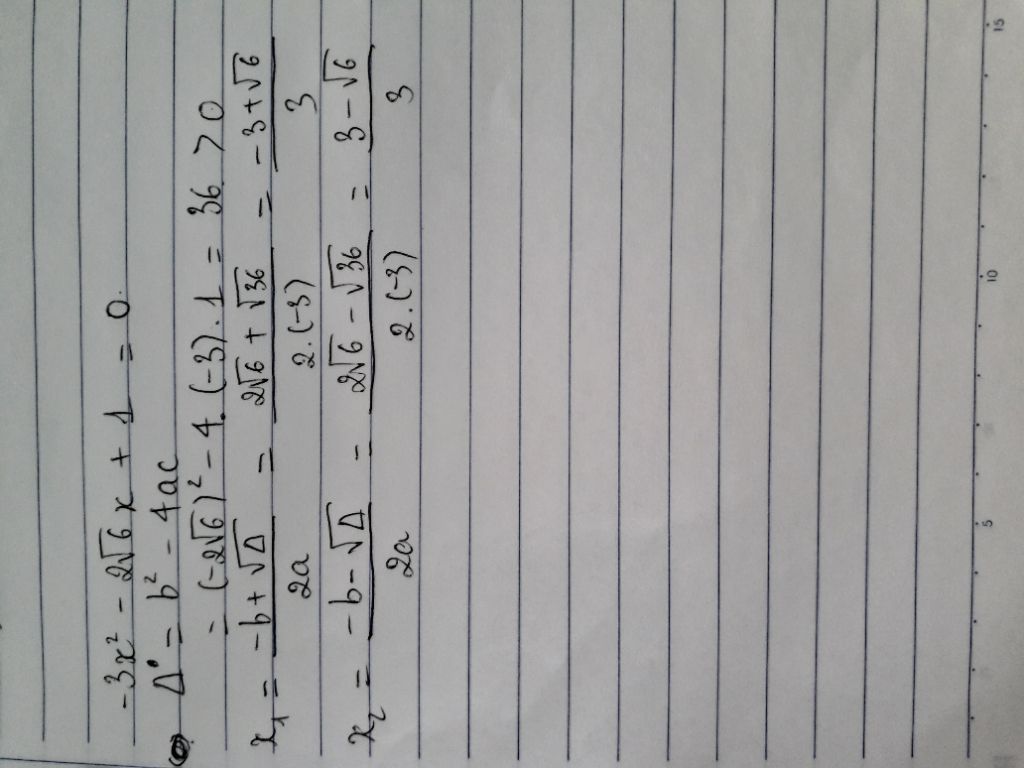 -3x² - 2√6x + 1 = 0.
Δ = b² - 4ac
= (-2√6)² - 4.(-3).1 = 36 > 0
x₁ = (-b + √Δ)/(2a) = (2√6 + √36)/(2.(-3)) = (-3 + √6)/3
x₂ = (-b - √Δ)/(2a) = (2√6 - √36)/(2.(-3)) = (3 - √6)/3
5 10 15